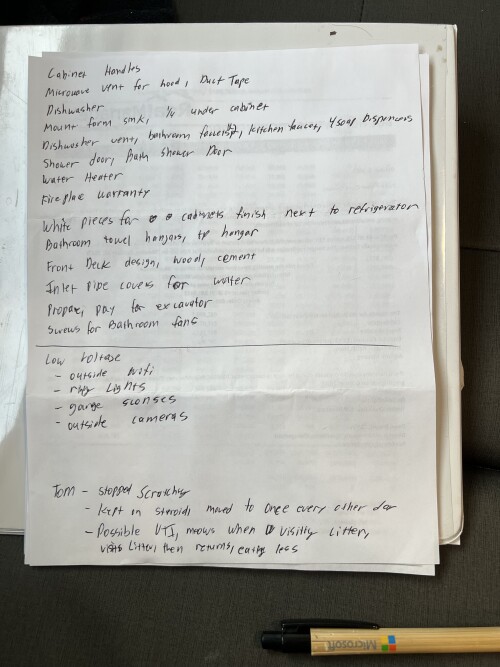 Cabinet Handles
Microwave vent for hood, Duct Tape
Dishwasher
Mount farm sink, 1/4 under cabinet
Dishwasher vent, bathroom faucets, kitchen faucet, 4 soap Dispensers
Shower door, Bath Shower Door
Water Heater
Fireplace warranty
White pieces for cabinets finish next to refrigerator
Bathroom towel hangars, tp hangar
Front Deck design, wood, cement
Inlet pipe covers for water
Propane, pay for excavator
Screws for Bathroom fans
Low Voltage
- outside wifi
- Lights
- garge sconses
- outside cameras
Tom - stopped Scratching
- Kept on steroids moved to once every other day
- Possible UTI, meows when visitig Litter,
visits Litter, then returns, eating less
Microsoft